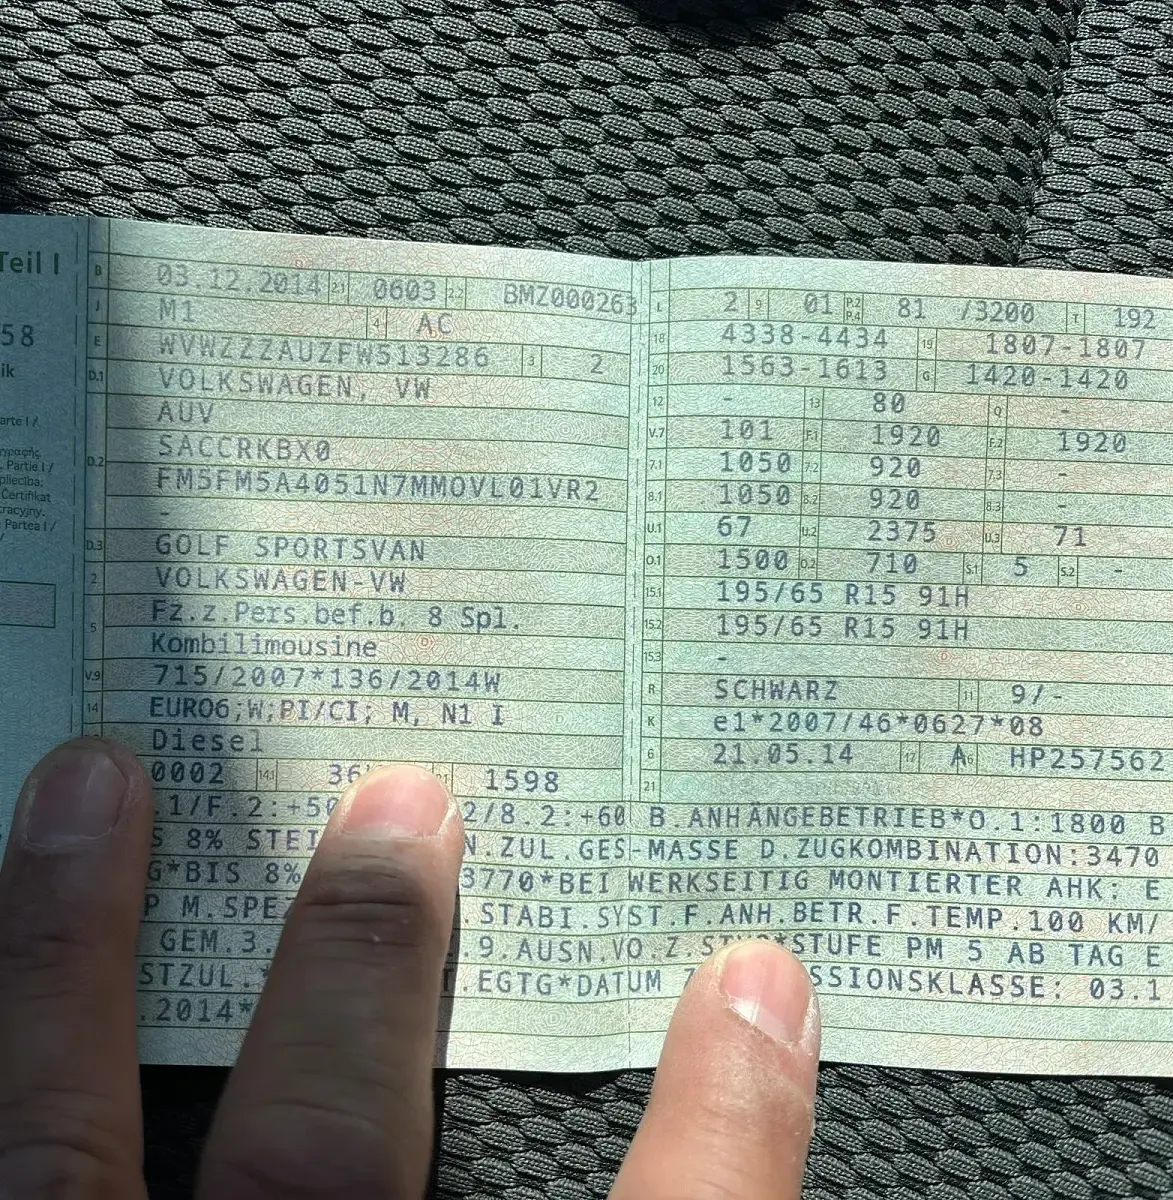 Teil I
58
ik
arte I /
Partie I /
Certifikat
Partea I /
B 03.12.2014 2.1 0603 2.2 BMZ000263
J M1 4 AC
E WVWZZZAUZFW513286 3 2
D.1 VOLKSWAGEN, VW
AUV
D.2 SACCRKBX0
FM5FM5A4051N7MMOVL01VR2
-
D.3 GOLF SPORTSVAN
2 VOLKSWAGEN-VW
5 Fz.z.Pers.bef.b. 8 Spl.
Kombilimousine
V.9 715/2007*136/2014W
14 EURO6;W;PI/CI; M, N1 I
Diesel
0002 14.1 36 1598
L 2 9 01 P.2 P.4 81 /3200 T 192
18 4338-4434 19 1807-1807
20 1563-1613 G 1420-1420
12 - 13 80 Q -
V.7 101 F.1 1920 F.2 1920
7.1 1050 7.2 920 7.3 -
8.1 1050 8.2 920 8.3 -
U.1 67 U.2 2375 U.3 71
O.1 1500 O.2 710 S.1 5 S.2 -
15.1 195/65 R15 91H
15.2 195/65 R15 91H
15.3 -
R SCHWARZ 11 9/-
K e1*2007/46*0627*08
6 21.05.14 17 A 16 HP257562
21
.1/F.2:+50 2/8.2:+60 B.ANHÄNGEBETRIEB*O.1:1800 B
S 8% STEI N.ZUL.GES-MASSE D.ZUGKOMBINATION:3470
G*BIS 8% 3770*BEI WERKSEITIG MONTIERTER AHK: E
P M.SPEZ .STABI.SYST.F.ANH.BETR.F.TEMP.100 KM/
GEM.3. .9.AUSN.VO.Z.STVO*STUFE PM 5 AB TAG E
STZUL.* T.EGTG*DATUM Z SSIONSKLASSE: 03.1
.2014*